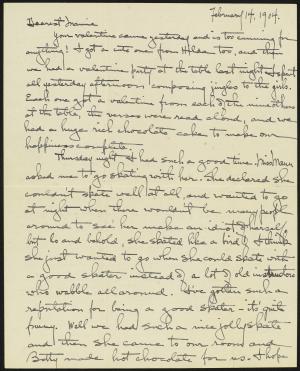 February 14, 1904.
Dearest Mamie
Your valentine came yesterday and is too cunning for
anything! I got a cute one from Hilda, too, and
had a valentine party at the table last night. I spent
all yesterday afternoon, composing jingles to the girls.
Each one got a valentine from each of the nine others
at the table, the verses were read aloud, and we
had a huge rich chocolate cake to make our
happiness complete.
Thursday night I had such a good time. Miss
asked me to go skating with her. She declared she
couldn't skate well at all, and wanted to go
at night when there wouldn't be many people
around to see her make an idiot of herself,
but lo and behold, she skated like a bird! I think
she just wanted to go when she could skate with
a good skater instead of a lot of old instructors
who wabble all around. I've gotten such a
reputation for being a good skater - it's quite
funny. Well we had such a nice jolly skate
and then she came to our room and
Betty made hot chocolate for us. I hope